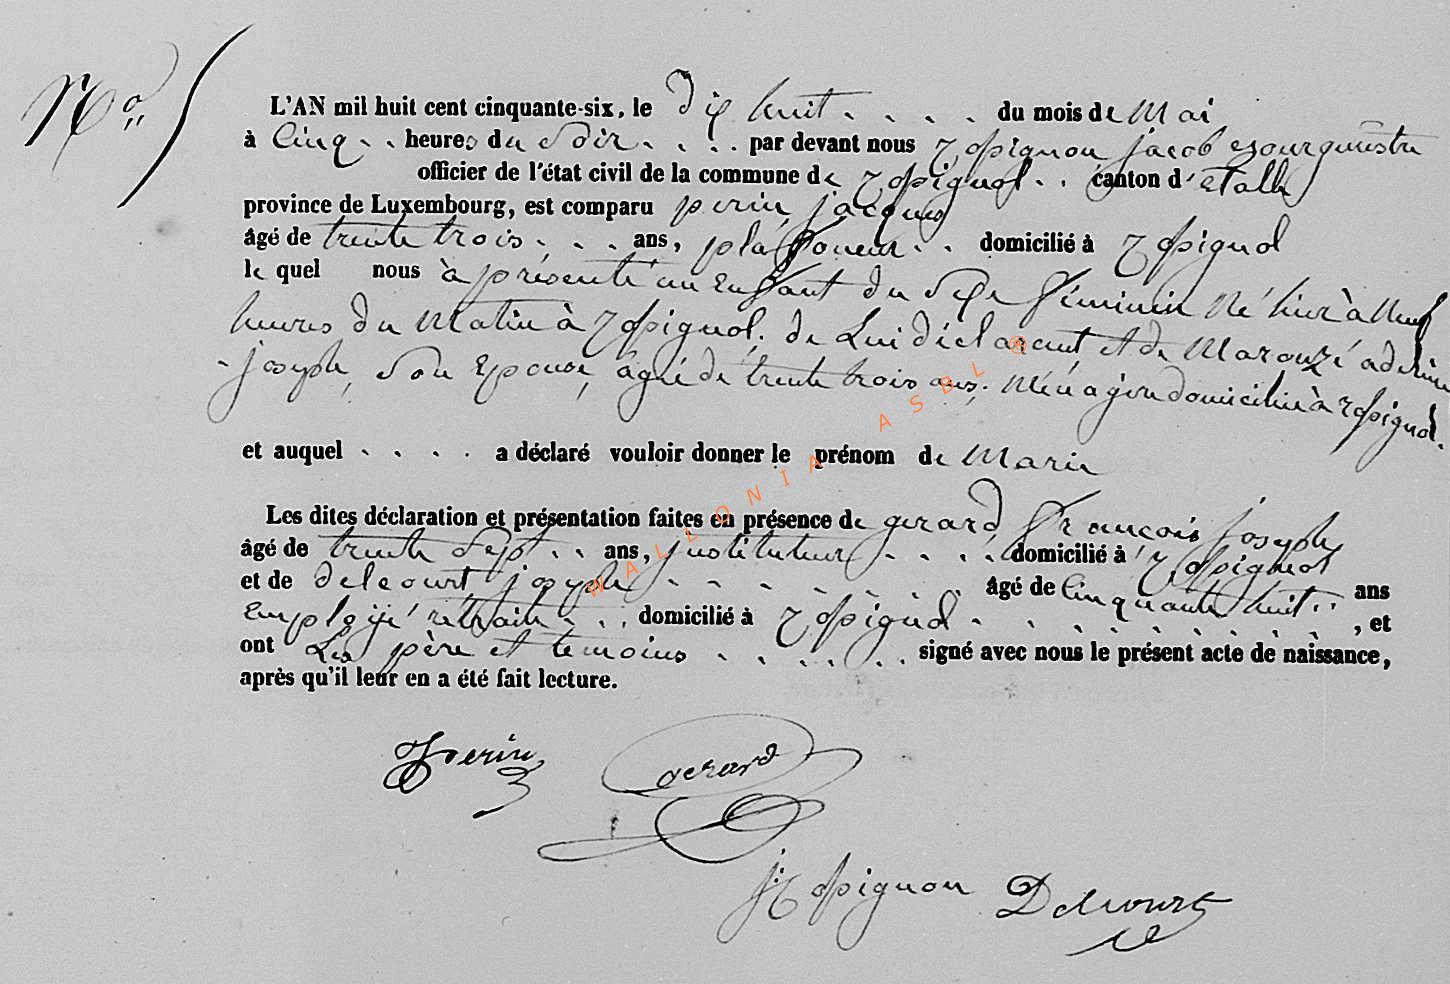 No 5
L'AN mil huit cent cinquante-six, le dix huit . . . . du mois de Mai
à Cinq . . heures du Soir . . . . par devant nous Rossignon jacob Bourgmestre
officier de l'état civil de la commune de Rossignol . . canton d'Etalle
province de Luxembourg, est comparu perin jacques
âgé de trente trois . . . ans, plafoneur . . domicilié à Rossignol
lequel nous à présenté un Enfant du Sexe féminin Né hier à Neuf
heures du Matin à Rossignol. de Lui déclarant et de Marouzé
joseph, Son Epouse, âgée de trente trois ans. Ménagère domiciliée à Rossignol.
et auquel . . . . a déclaré vouloir donner le prénom de Marie
Les dites déclaration et présentation faites en présence de gerard François joseph
âgé de trente Sept . . ans, instituteur . . . . domicilié à Rossignol
et de delcourt joseph . . . . . . . âgé de Cinquante huit . . ans
Employé rétraité . . . domicilié à Rossignol . . . . . . . . , et
ont Les père et temoins . . . . . . signé avec nous le présent acte de naissance,
après qu'il leur en a été fait lecture.
Perin
Gerard
J: Rossignon Delcourt
WALLONIA ASBL ©